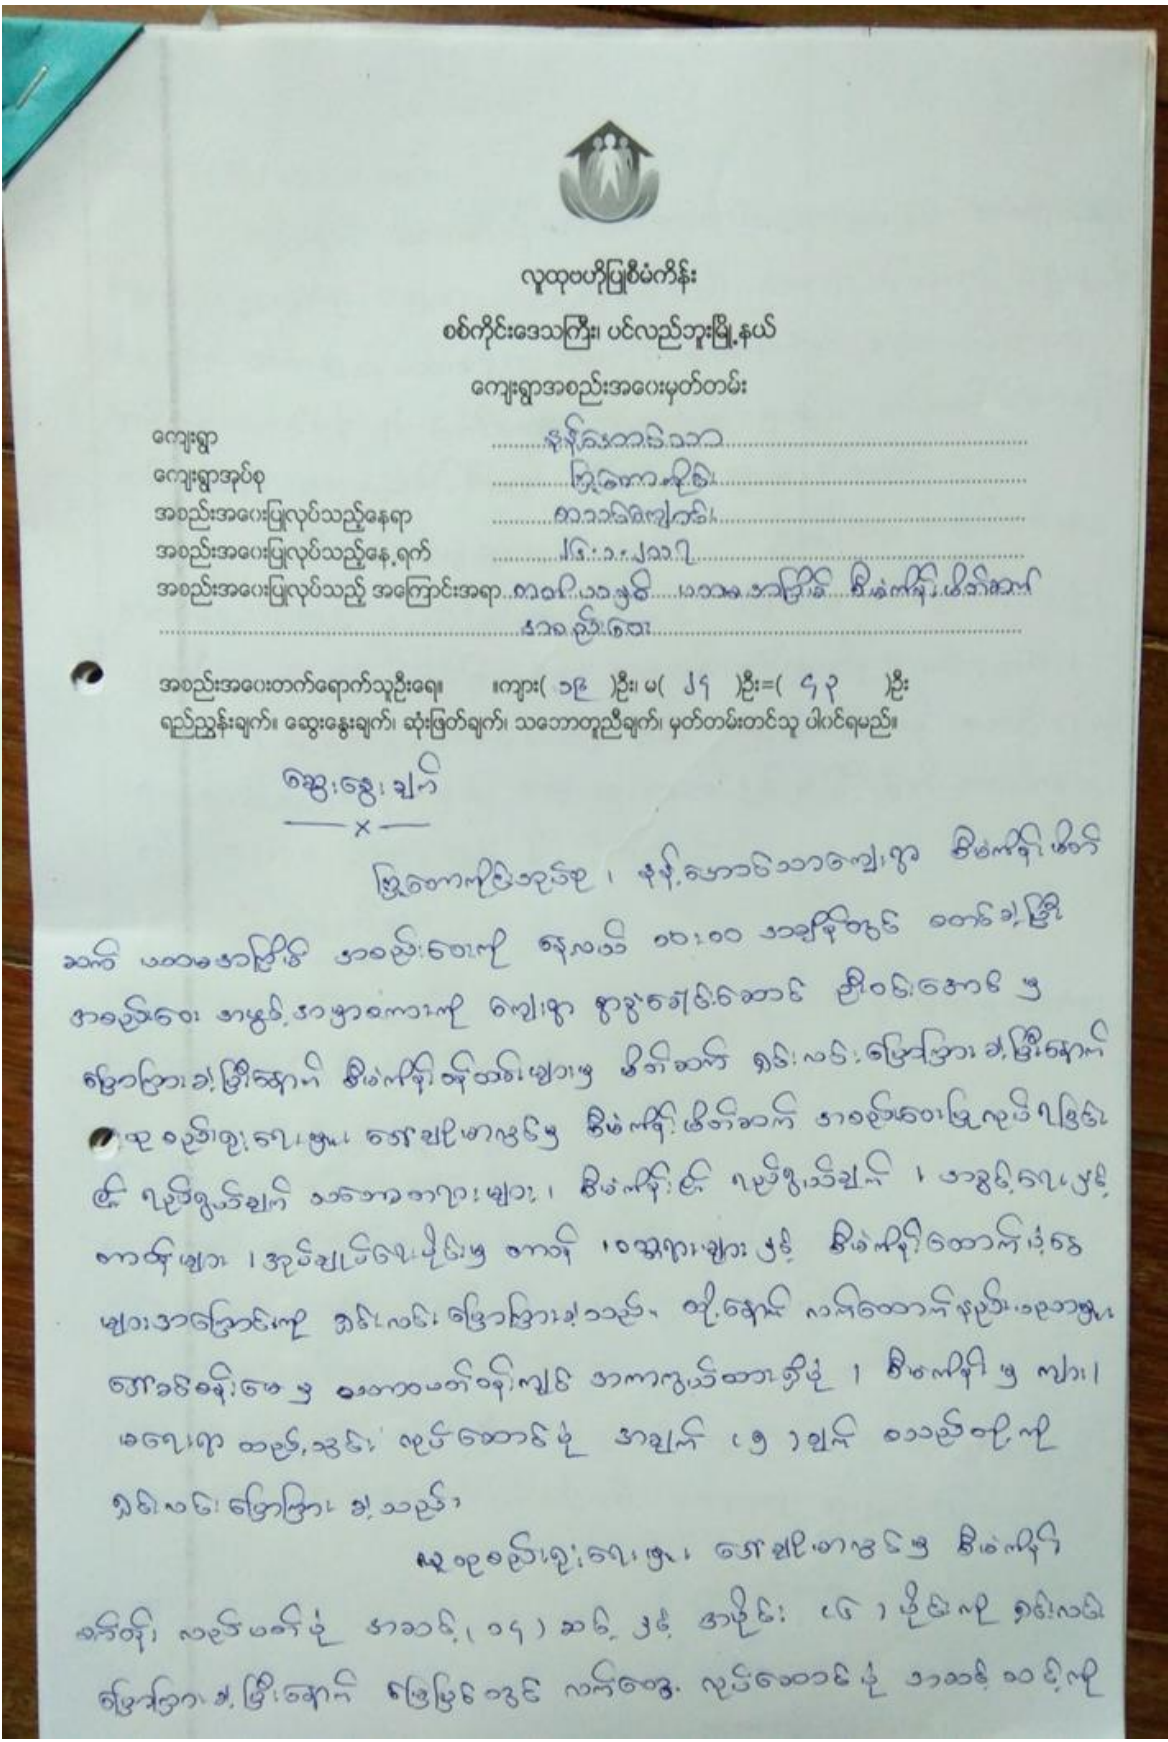 လူထုဗဟိုပြုစီမံကိန်း
စစ်ကိုင်းဒေသကြီး၊ ပင်လည်ဘူးမြို့နယ်
ကျေးရွာအစည်းအဝေးမှတ်တမ်း
ကျေးရွာ ........ နန့်အောင်သာ ........
ကျေးရွာအုပ်စု ........
အစည်းအဝေးပြုလုပ်သည့်နေရာ ........ စာသင်ကျောင်း ........
အစည်းအဝေးပြုလုပ်သည့်နေ့ရက် ........ ၂၄.၁.၂၀၁၇ ........
အစည်းအဝေးပြုလုပ်သည့် အကြောင်းအရာ .. ပထမအကြိမ် စီမံကိန်းမိတ်ဆက်
........ အစည်းအဝေး ........
အစည်းအဝေးတက်ရောက်သူဦးရေ။ ။ကျား( ၁၉ )ဦး၊ မ( ၂၄ )ဦး=( ၄၃ )ဦး
ရည်ညွှန်းချက်။ ဆွေးနွေးချက်၊ ဆုံးဖြတ်ချက်၊ သဘောတူညီချက်၊ မှတ်တမ်းတင်သူ ပါဝင်ရမည်။
ဆွေးနွေးချက်
နန့်အောင်သာကျေးရွာ စီမံကိန်းမိတ်
ဆက် ပထမအကြိမ် အစည်းဝေးကို နေ့လယ် အချိန်တွင် စတင်ခဲ့ပြီး
အစည်းဝေး အဖွင့်အမှာစကားကို ကျေးရွာ ရွာခွဲခေါင်းဆောင် ဦးဝင်းအောင် မှ
ပြောကြားခဲ့ပြီးနောက် စီမံကိန်းဝန်ထမ်းများမှ မိတ်ဆက် ရှင်းလင်းပြောကြားခဲ့ပြီးနောက်
လူထုစည်းရုံးရေးမှူး ဒေါ်ချိုမာလွင်မှ စီမံကိန်းမိတ်ဆက် အစည်းဝေးပြုလုပ်ရခြင်း
၏ ရည်ရွယ်ချက် သဘောတရားများ၊ စီမံကိန်း၏ ရည်ရွယ်ချက် ၊ အခွင့်ရေးနှင့်
တာဝန်များ ၊ အုပ်ချုပ်ရေးပိုင်းမှ တာဝန် ဝတ္တရားများနှင့် စီမံကိန်းထောက်ပံ့ငွေ
များအကြောင်းကို ရှင်းလင်းပြောကြားခဲ့သည်။ ထို့နောက် လက်ထောက်နည်းပညာမှူး
ဒေါ်ခင်စန်းမေ မှ သဘာဝပတ်ဝန်းကျင် အကာကွယ်ထားရှိပုံ ၊ စီမံကိန်းမှ ကျား၊
မရေးရာ ထည့်သွင်း လုပ်ဆောင်ပုံ အချက် (၅) ချက် စသည်တို့ကို
ရှင်းလင်းပြောကြားခဲ့သည်။
လူထုစည်းရုံးရေးမှူး ဒေါ်ချိုမာလွင်မှ စီမံကိန်း
စက်ဝန်း လည်ပတ်ပုံ အဆင့် (၁၄) ဆင့် နှင့် အပိုင်း (၆) ပိုင်းကို ရှင်းလင်း
ပြောကြားခဲ့ပြီးနောက် မြေပြင်တွင် လက်တွေ့ လုပ်ဆောင်ပုံ အဆင့်ဆင့်ကို